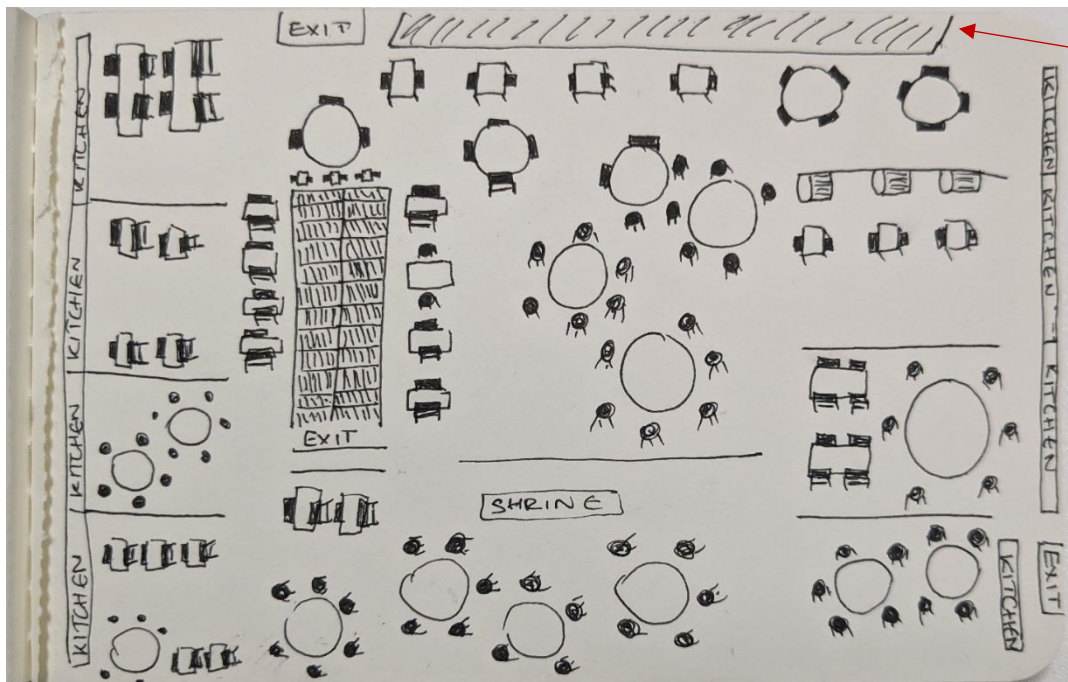 EXIT
KITCHEN
KITCHEN
KITCHEN
KITCHEN
EXIT
SHRINE
KITCHEN
KITCHEN
KITCHEN
KITCHEN
EXIT